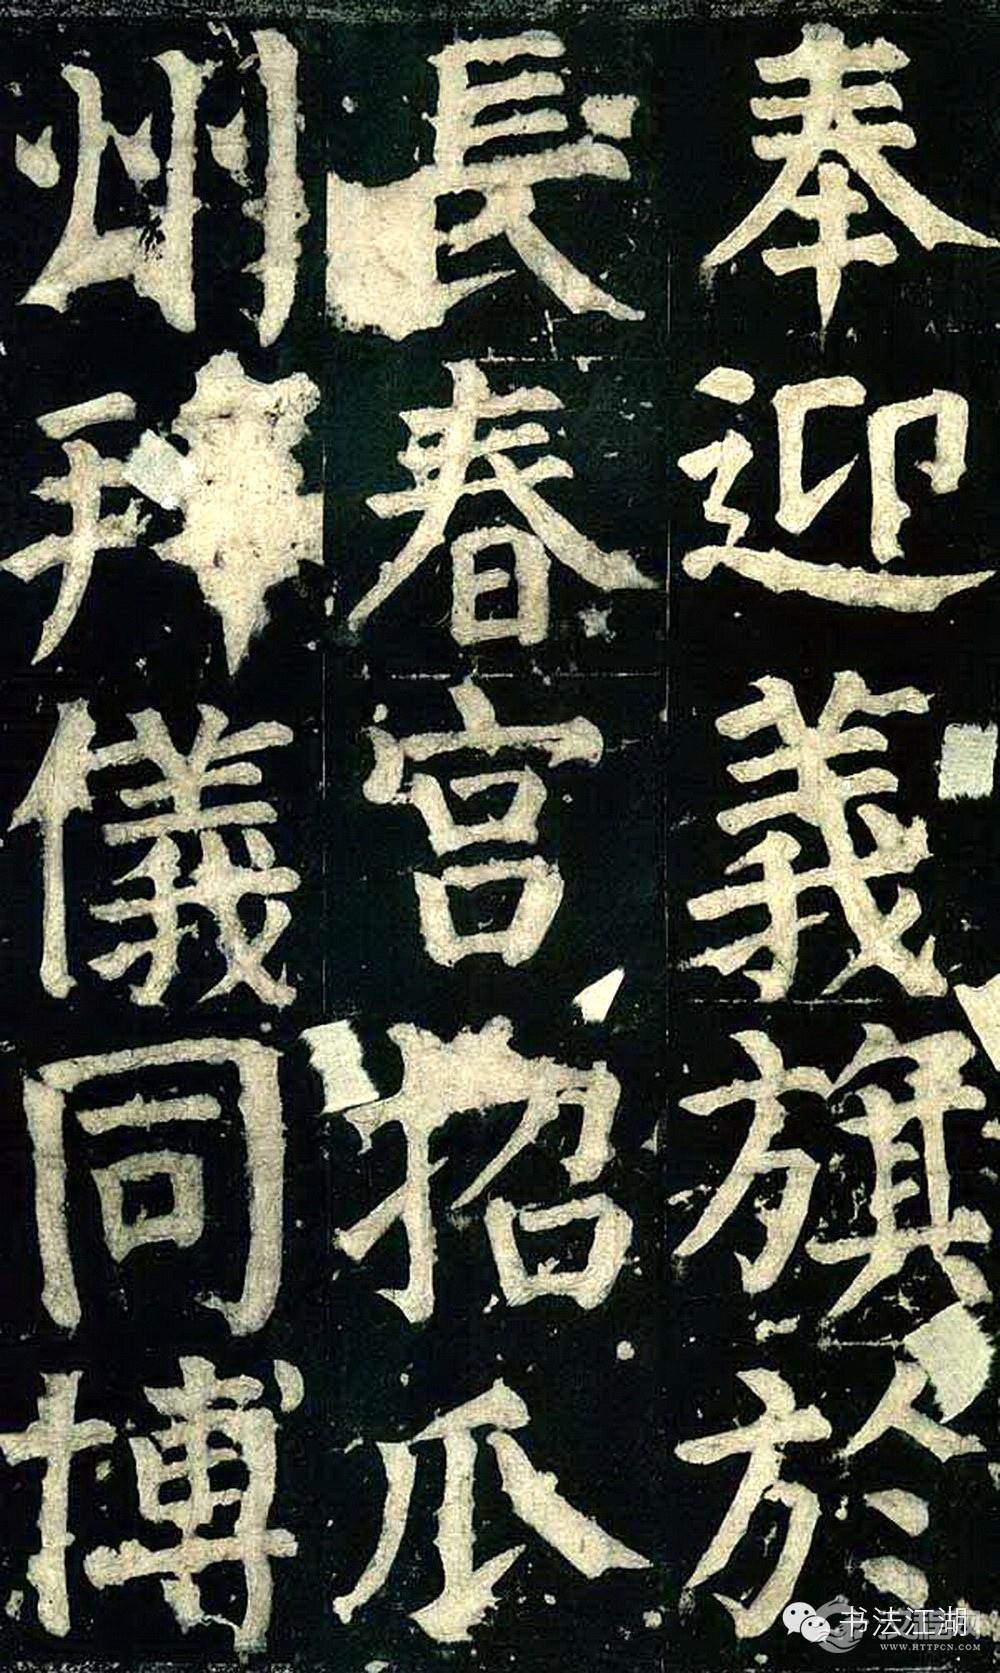 奉迎義旗於
長春宮招瓜
州拜儀同博
书法江湖
WWW.HTTPCN.COM